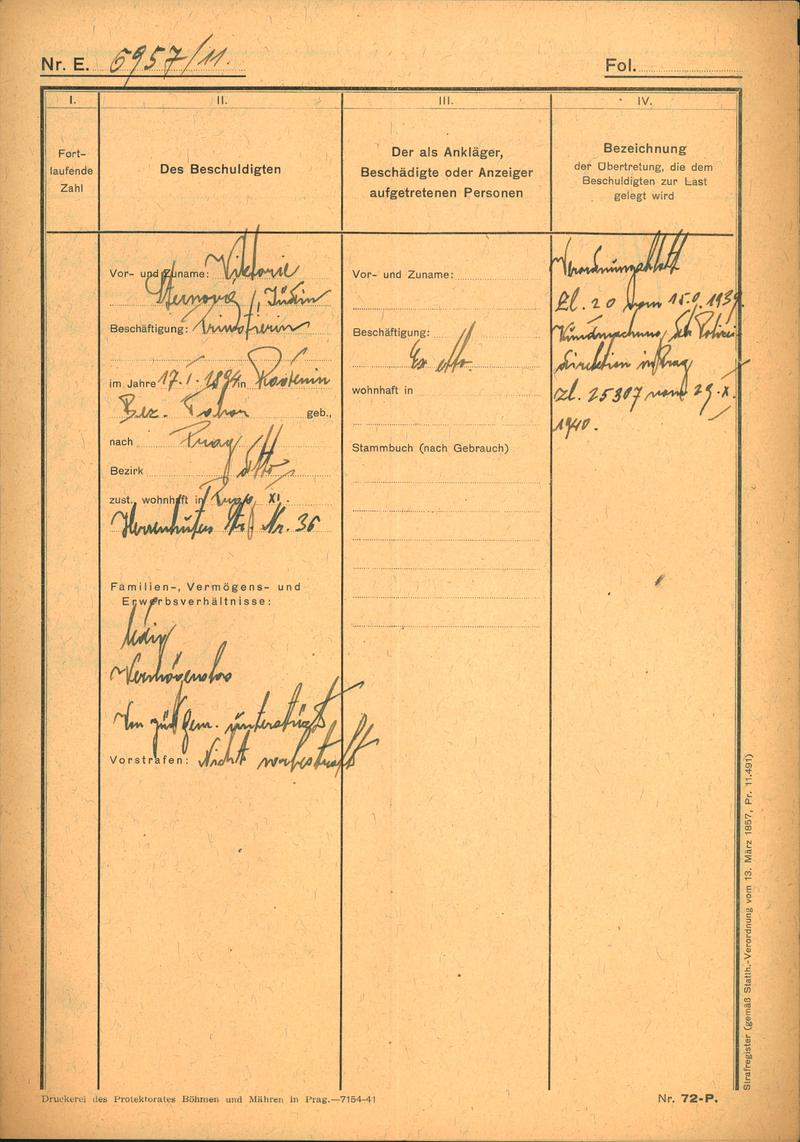 Nr. E. 6957/11.
Fol.
I.
II.
III.
IV.
Fort-
laufende
Zahl
Des Beschuldigten
Der als Ankläger,
Beschädigte oder Anzeiger
aufgetretenen Personen
Bezeichnung
der Übertretung, die dem
Beschuldigten zur Last
gelegt wird
Vor- und Zuname: Viktorie
Sternová, Jüdin
Beschäftigung:
im Jahre 17.I.1894 in
Bez. Tabor geb.,
nach Prag
Bezirk dtto
zust., wohnhaft in Prag XI.
Herrenhuter Str. Nr. 36
Familien-, Vermögens- und
Erwerbsverhältnisse:
ledig
Vermögenslos
Von jüd. Gem. unterstützt
Vorstrafen: Nicht vorbestraft
Vor- und Zuname:
Beschäftigung:
Ex offo.
wohnhaft in
Stammbuch (nach Gebrauch)
Verordnungsblatt
Zl. 20 vom 1939.
Kundmachung der Polizei-
direktion in Prag
Zl. 25307 vom 29.X.
1940.
Strafregister (gemäß Statth.-Verordnung vom 13. März 1857, Pr. 11.491)
Druckerei des Protektorates Böhmen und Mähren in Prag.—7154-41
Nr. 72-P.